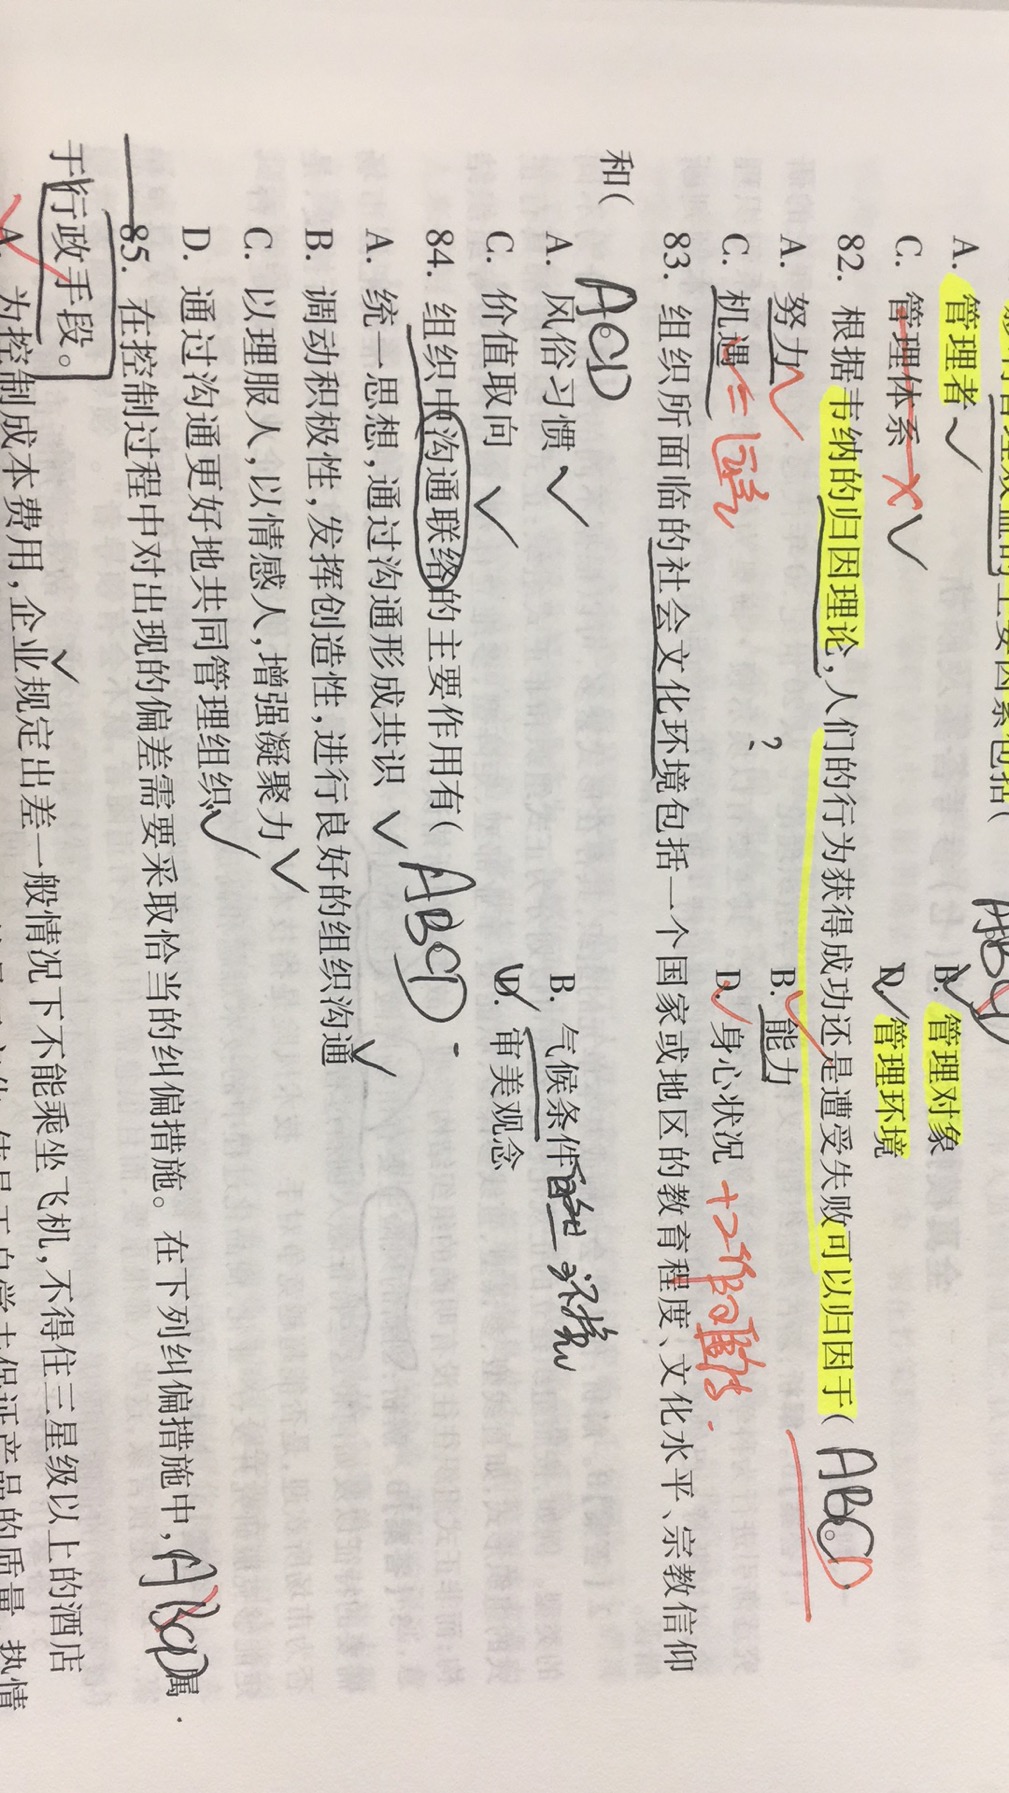 A. 管理者 B. 管理对象
C. 管理体系 D. 管理环境
82. 根据韦纳的归因理论,人们的行为获得成功还是遭受失败可以归因于( ABCD
A. 努力 B. 能力
C. 机遇 = 运气 D. 身心状况
83. 组织所面临的社会文化环境包括一个国家或地区的教育程度、文化水平、宗教信仰
和( ACD
A. 风俗习惯 B. 气候条件 自然环境
C. 价值取向 D. 审美观念
84. 组织中沟通联络的主要作用有( ABCD
A. 统一思想,通过沟通形成共识
B. 调动积极性,发挥创造性,进行良好的组织沟通
C. 以理服人,以情感人,增强凝聚力
D. 通过沟通更好地共同管理组织
85. 在控制过程中对出现的偏差需要采取恰当的纠偏措施。在下列纠偏措施中,属
于行政手段。
A. 为控制成本费用,企业规定出差一般情况下不能乘坐飞机,不得住三星级以上的酒店